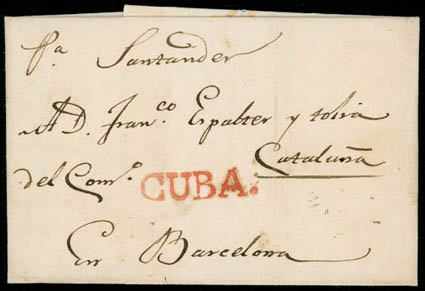 Pa Santander
A D. Franco Epalter y tolra
Cataluña
del Como. CUBA.
En Barcelona